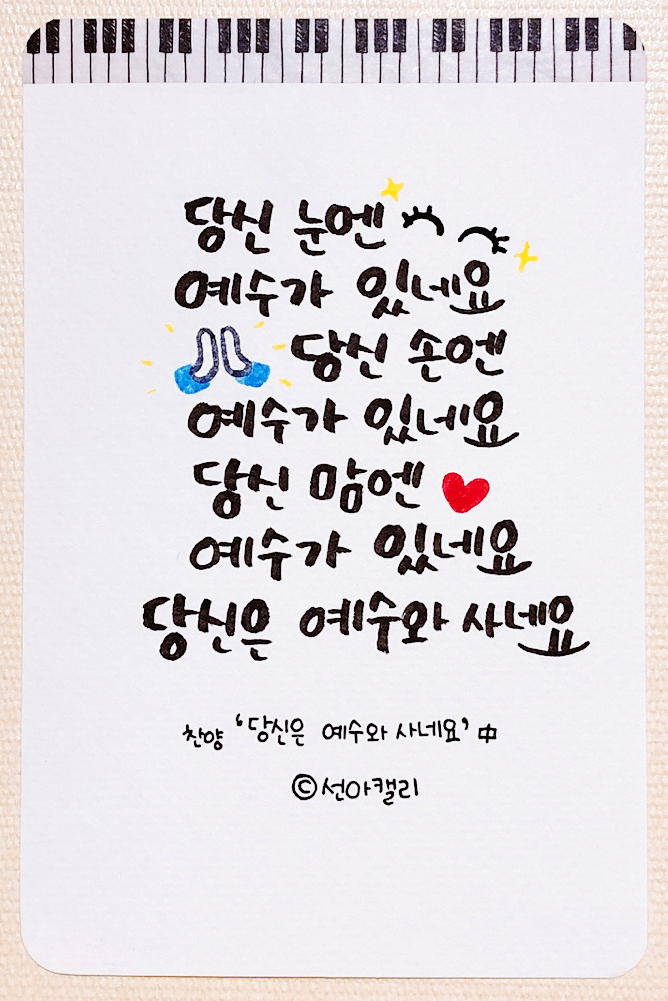 당신 눈엔
예수가 있네요
당신 손엔
예수가 있네요
당신 맘엔
예수가 있네요
당신은 예수와 사네요
찬양 '당신은 예수와 사네요' 中
©선아캘리